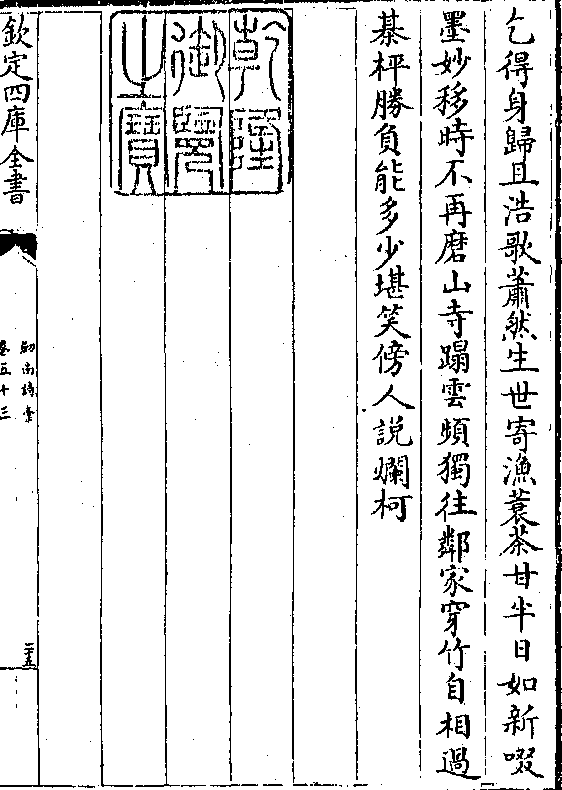 乞得身歸且浩歌蕭然生世寄漁蓑茶甘半日如新啜
墨妙移時不再磨山寺蹋雲頻獨往鄰家穿竹自相過
棊枰勝負能多少堪笑傍人說爛柯
乾隆
御覽
之寶
欽定四庫全書
劍南詩稾
卷五十三
二十五